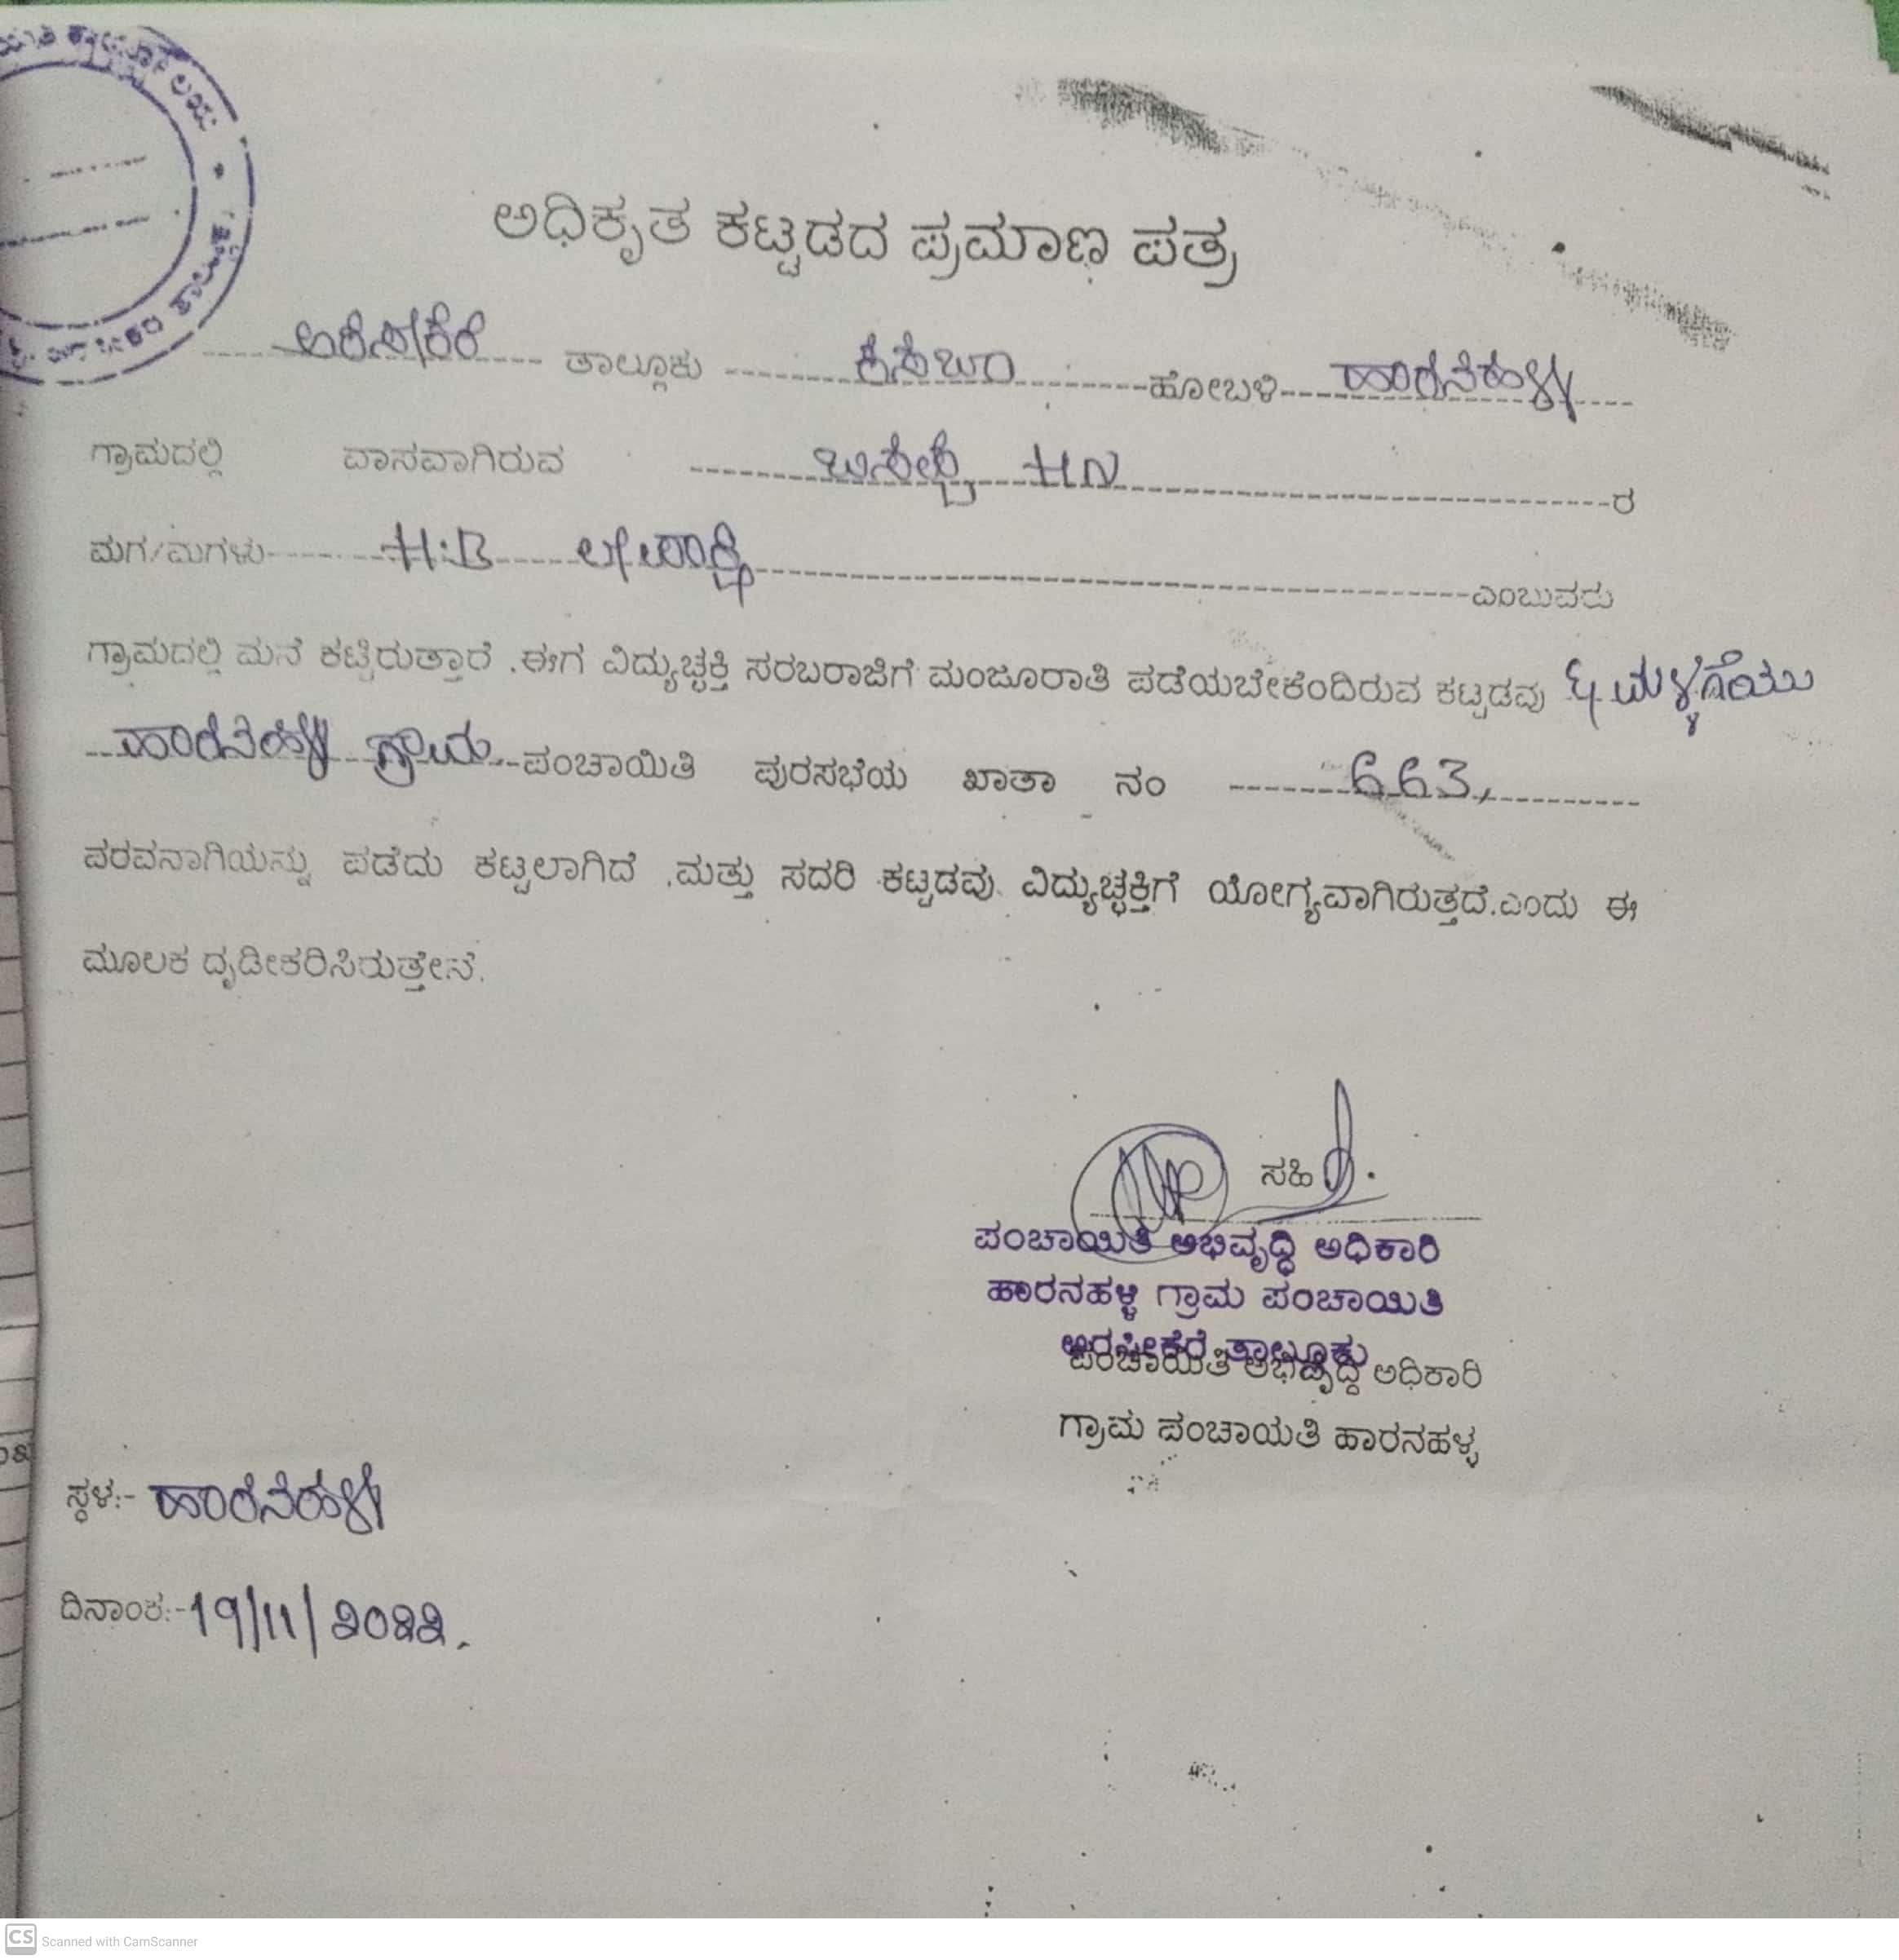 ಅಧಿಕೃತ ಕಟ್ಟಡದ ಪ್ರಮಾಣ ಪತ್ರ
ಅರಸೀಕೆರೆ ತಾಲ್ಲೂಕು ಕಸಬಾ ಹೋಬಳಿ ಹಾರನಹಳ್ಳಿ
ಗ್ರಾಮದಲ್ಲಿ ವಾಸವಾಗಿರುವ HN ರ
ಮಗ/ಮಗಳು H.B ಎಂಬುವರು
ಗ್ರಾಮದಲ್ಲಿ ಮನೆ ಕಟ್ಟಿರುತ್ತಾರೆ .ಈಗ ವಿದ್ಯುಚ್ಛಕ್ತಿ ಸರಬರಾಜಿಗೆ ಮಂಜೂರಾತಿ ಪಡೆಯಬೇಕೆಂದಿರುವ ಕಟ್ಟಡವು ಮಳ್ಳಿಗೆಯು
ಹಾರನಹಳ್ಳಿ ಗ್ರಾಮ ಪಂಚಾಯಿತಿ ಪುರಸಭೆಯ ಖಾತಾ ನಂ 663,
ಪರವನಾಗಿಯನ್ನು ಪಡೆದು ಕಟ್ಟಲಾಗಿದೆ .ಮತ್ತು ಸದರಿ ಕಟ್ಟಡವು ವಿದ್ಯುಚ್ಛಕ್ತಿಗೆ ಯೋಗ್ಯವಾಗಿರುತ್ತದೆ.ಎಂದು ಈ
ಮೂಲಕ ದೃಡೀಕರಿಸಿರುತ್ತೇನೆ.
ಸಹಿ
ಪಂಚಾಯಿತಿ ಅಭಿವೃದ್ಧಿ ಅಧಿಕಾರಿ
ಹಾರನಹಳ್ಳಿ ಗ್ರಾಮ ಪಂಚಾಯಿತಿ
ಅರಸೀಕೆರೆ ತಾಲ್ಲೂಕು
ಪಂಚಾಯಿತಿ ಅಭಿವೃದ್ಧಿ ಅಧಿಕಾರಿ
ಗ್ರಾಮ ಪಂಚಾಯತಿ ಹಾರನಹಳ್ಳಿ
ಸ್ಥಳ:- ಹಾರನಹಳ್ಳಿ
ದಿನಾಂಕ:- 19/11/2022.
CS Scanned with CamScanner